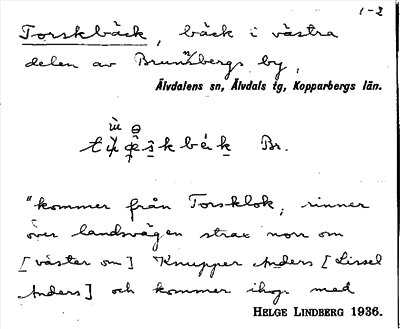 1-2
Torskbäck, bäck i västra
delen av Brunnbergs by,
Älvdalens sn, Älvdals tg, Kopparbergs län.
Br.
"kommer från Torsklok, rinner
över landsvägen strax norr om
[väster om] Knupper Anders [Lissel
Anders] och kommer ihop med
HELGE LINDBERG 1936.